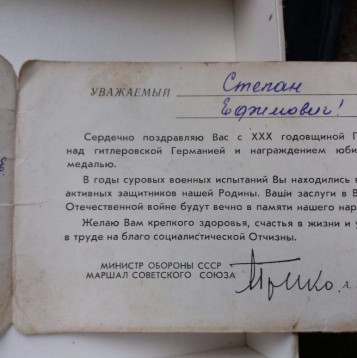 УВАЖАЕМЫЙ Степан
Ефимович!
Сердечно поздравляю Вас с XXX годовщиной П
над гитлеровской Германией и награждением юби
медалью.
В годы суровых военных испытаний Вы находились в
активных защитников нашей Родины. Ваши заслуги в В
Отечественной войне будут вечно в памяти нашего нар
Желаю Вам крепкого здоровья, счастья в жизни и у
в труде на благо социалистической Отчизны.
МИНИСТР ОБОРОНЫ СССР
МАРШАЛ СОВЕТСКОГО СОЮЗА А.